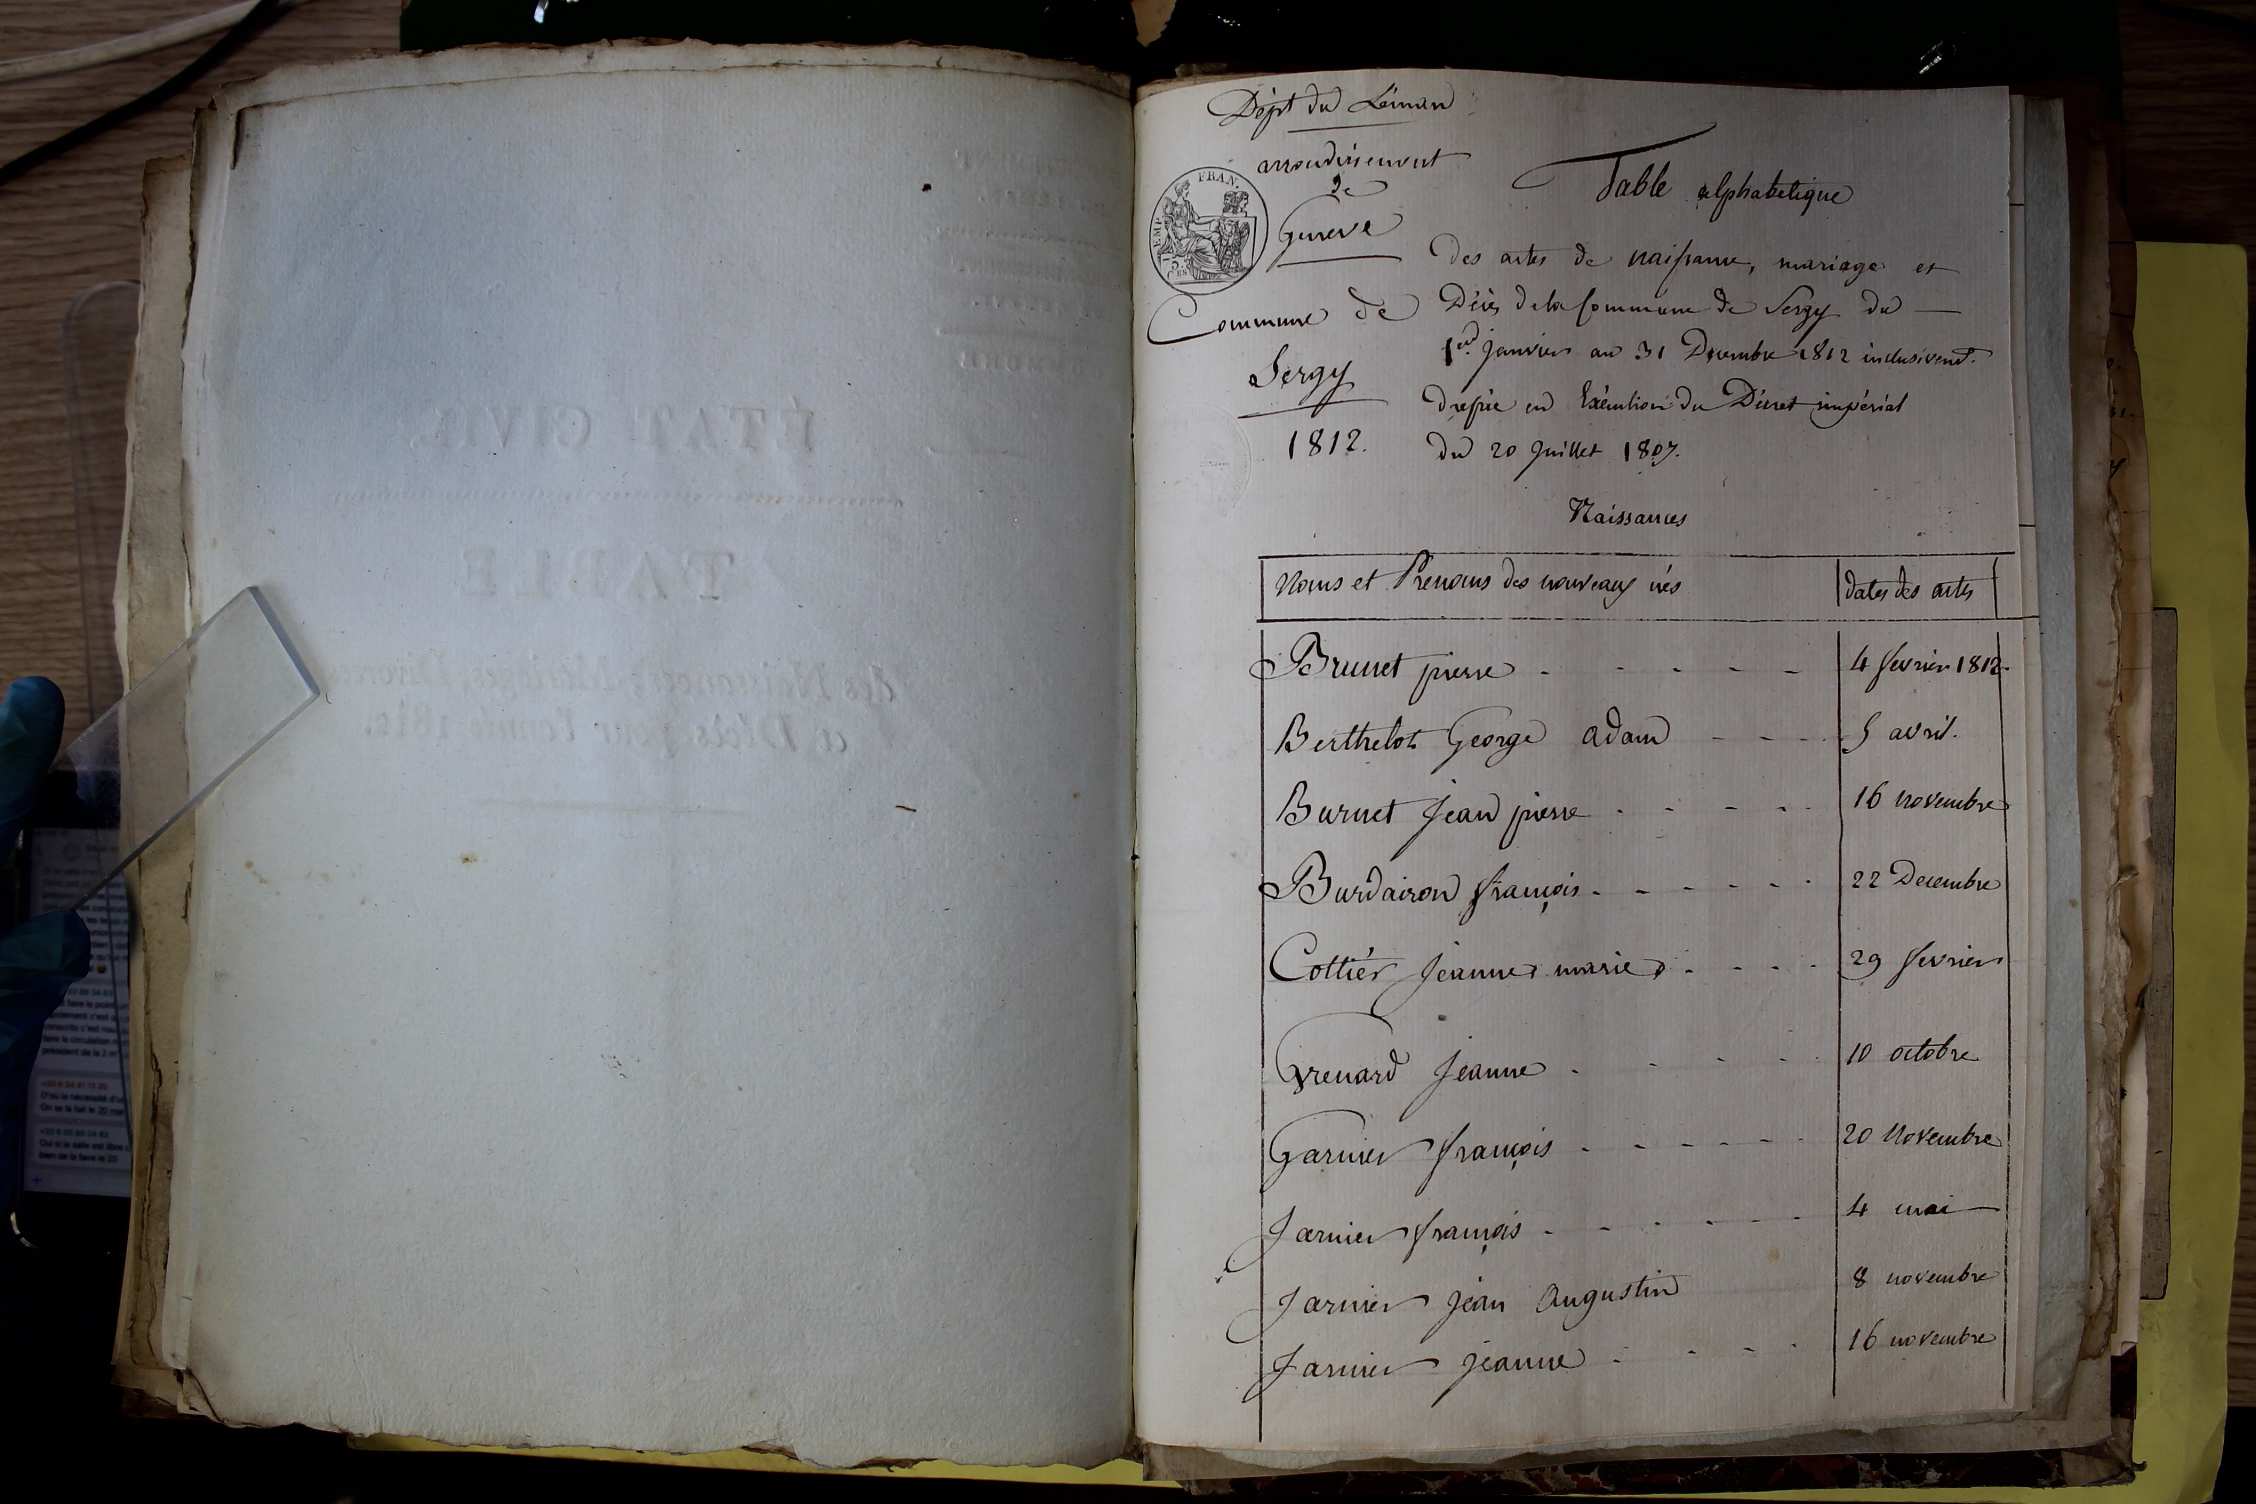 ÉTAT CIVIL.
TABLE
des Naissances, Mariages, Divorces
et Décès, pour l'année 1812.
Dépt du Léman
arrondissement
de
Geneve
FRAN.
EMP.
75.
CES
Commune de
Sergy
1812.
Table alphabetique
des actes de naissance, mariage et
Décès de la Commune de Sergy du
1er janvier au 31 Decembre 1812 inclusivemt.
en Exécution du Décret impérial
du 20 Juillet 1807.
Naissances
Noms et Prenoms des nouveaux nés dates des actes
Brunet pierre 4 fevrier 1812
Berthelot George adam 5 avril.
Burnet Jean pierre 16 novembre
Burdairon françois 22 Decembre
Cottier Jeanne marie 29 fevrier
Grenard Jeanne 10 octobre
Garnier françois 20 Novembre
Jarnier françois 4 mai
Jarnier jean Augustin 8 novembre
Jarnier jeanne 16 novembre